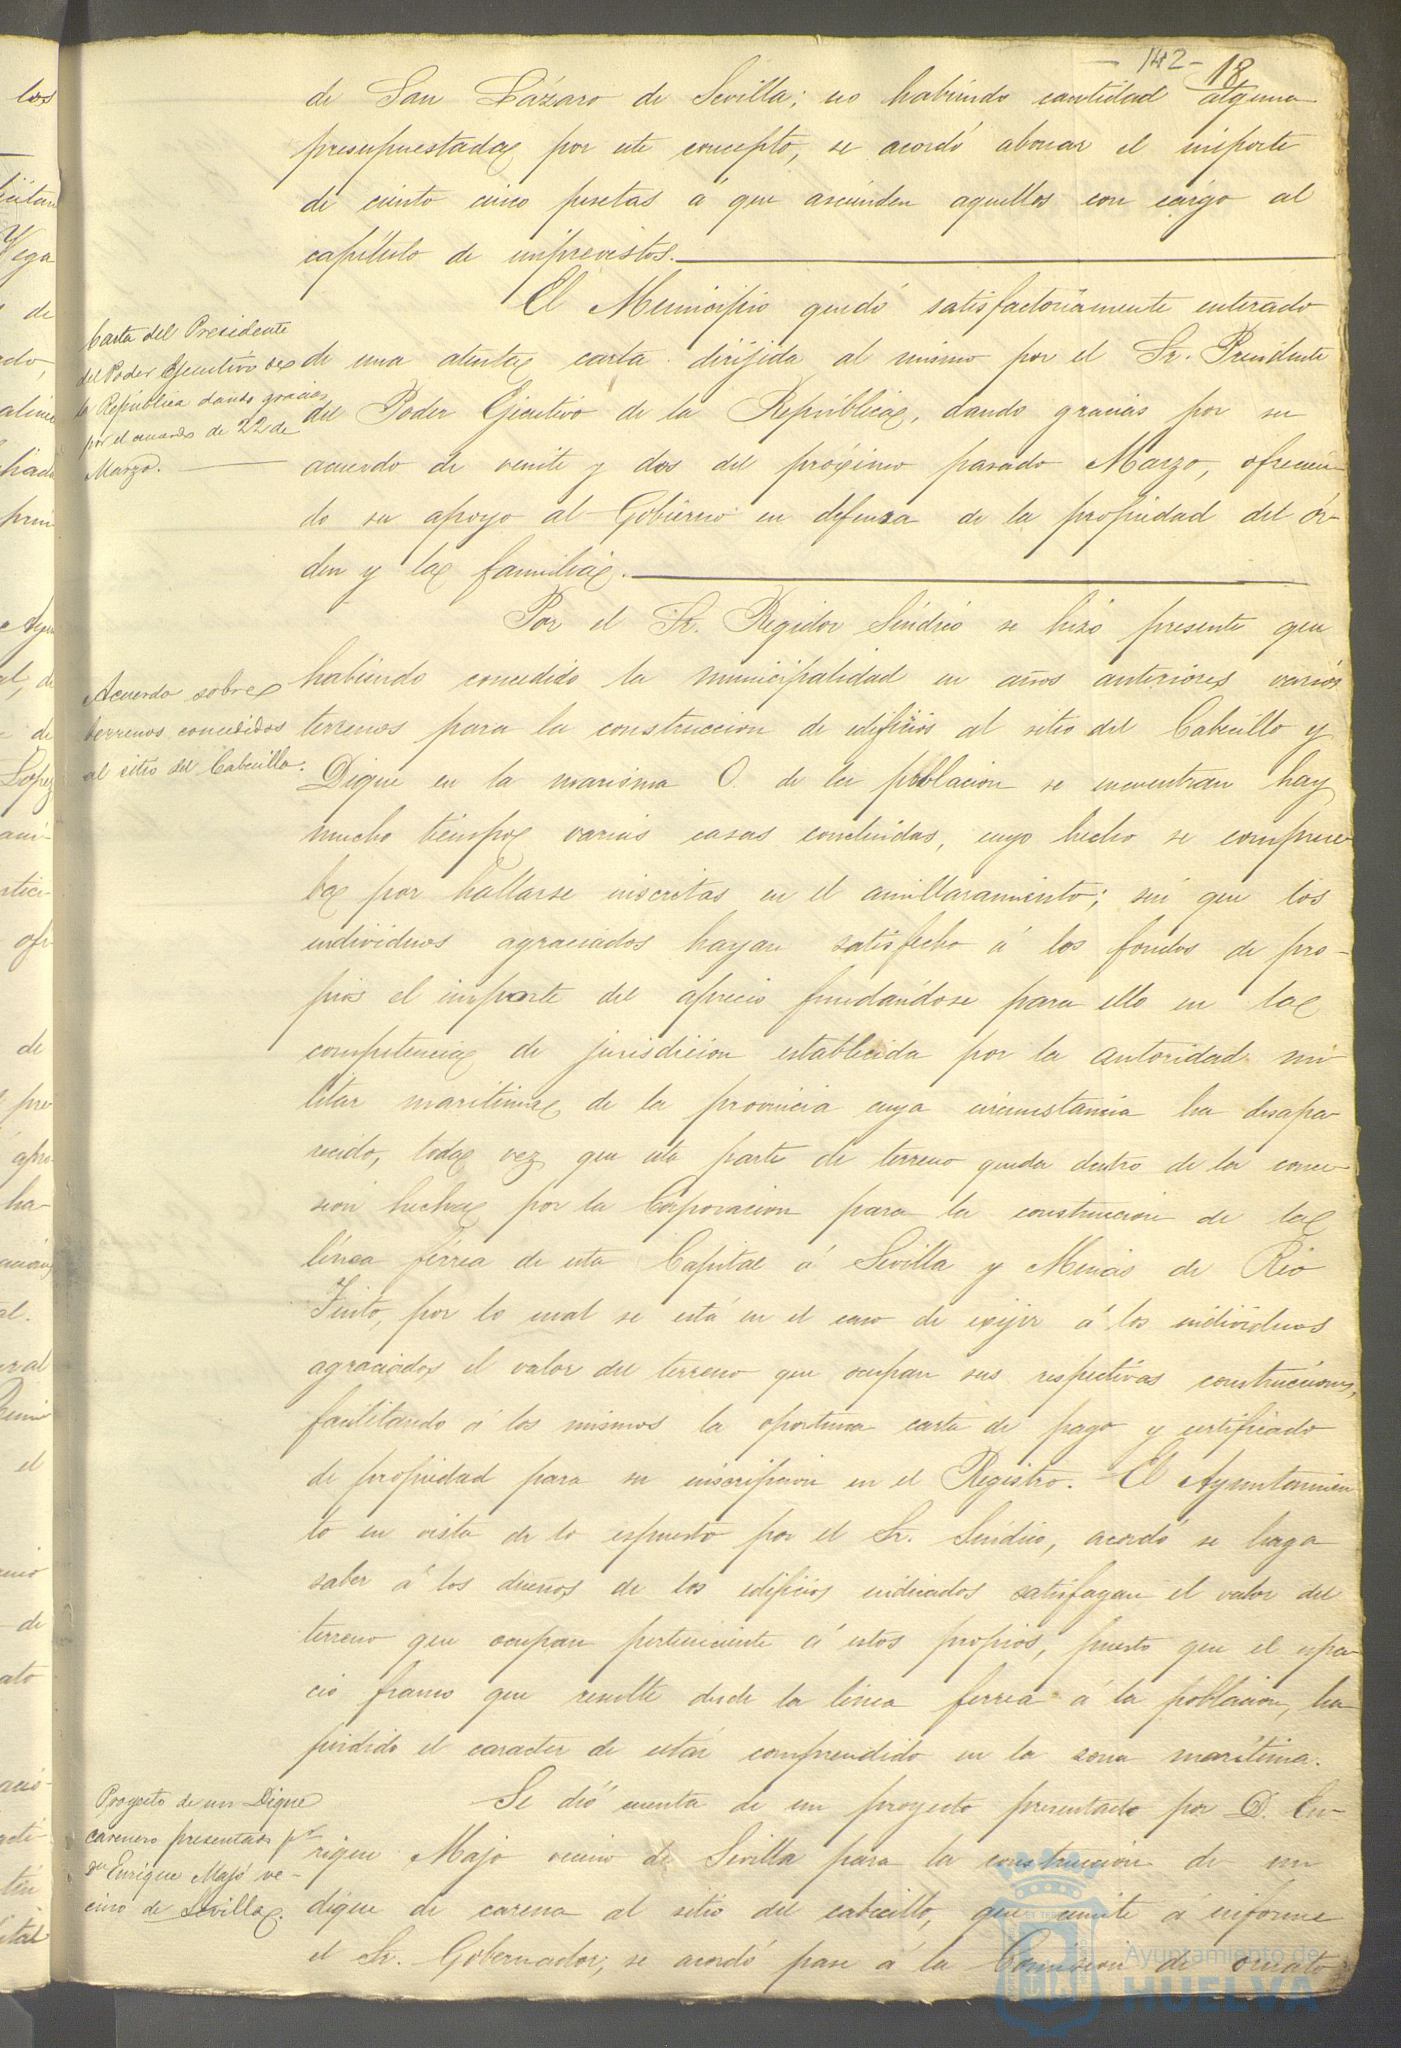 142-
18
de San Lázaro de Sevilla; no habiendo cantidad alguna
presupuestada por este concepto, se acordó abonar el importe
de ciento cinco pesetas á que ascienden aquellos con cargo al
capítulo de imprevistos.
Carta del Presidente
del Poder Ejecutivo de
la República dando gracias
por el acuerdo de 22 de
Marzo.
El Municipio quedó satisfactoriamente enterado
de una atenta carta dirijida al mismo por el Sr. Presidente
del Poder Ejecutivo de la República, dando gracias por su
acuerdo de veinte y dos del próximo pasado Marzo, ofrecien-
do su apoyo al Gobierno en defensa de la propiedad del ór-
den y la familia.
Acuerdo sobre
terrenos concedidos
al sitio del Cabecillo.
Por el Sr. Regidor Síndico se hizo presente que
habiendo concedido la municipalidad en años anteriores varios
terrenos para la construccion de edificios al sitio del Cabecillo y
Dique en la marisma O. de la poblacion se encuentran hay
mucho tiempo varias casas concluidas, cuyo hecho se comprue-
ba por hallarse inscritas en el amillaramiento; sin que los
individuos agraciados hayan satisfecho á los fondos de pro-
pios el importe del aprecio fundándose para ello en la
competencia de jurisdicion establecida por la autoridad mi
litar maritima de la provincia cuya circunstancia ha desapa-
recido, toda vez que esta parte de terreno queda dentro de la conce-
sion hecha por la Corporacion para la construccion de la
línea férrea de esta Capital á Sevilla y Minas de Rio
Tinto, por lo cual se está en el caso de exijir á los individuos
agraciados el valor del terreno que ocupan sus respectivas construcciones,
facilitando á los mismos la oportuna carta de pago y certificado
de propiedad para su inscripcion en el Registro. El Ayuntamien
to en vista de lo espuesto por el Sr. Síndico, acordó se haga
saber á los dueños de los edificios indicados satisfagan el valor del
terreno que ocupan perteneciente á estos propios, puesto que el espa-
cio franco que resulte desde la linea ferrea á la poblacion, ha
perdido el caracter de estar comprendido en la zona marítima.
Proyecto de un Dique
carenero presentado pr
dn Enrique Majó ve-
cino de Sevilla.
Se dió cuenta de un proyecto presentado por D. En-
rique Majo vecino de Sevilla para la construccion de un
dique de carena al sitio del cabecillo, que remite á informe
el Sr. Gobernador; se acordó pase á la Comision de ornato
Ayuntamiento de
HUELVA